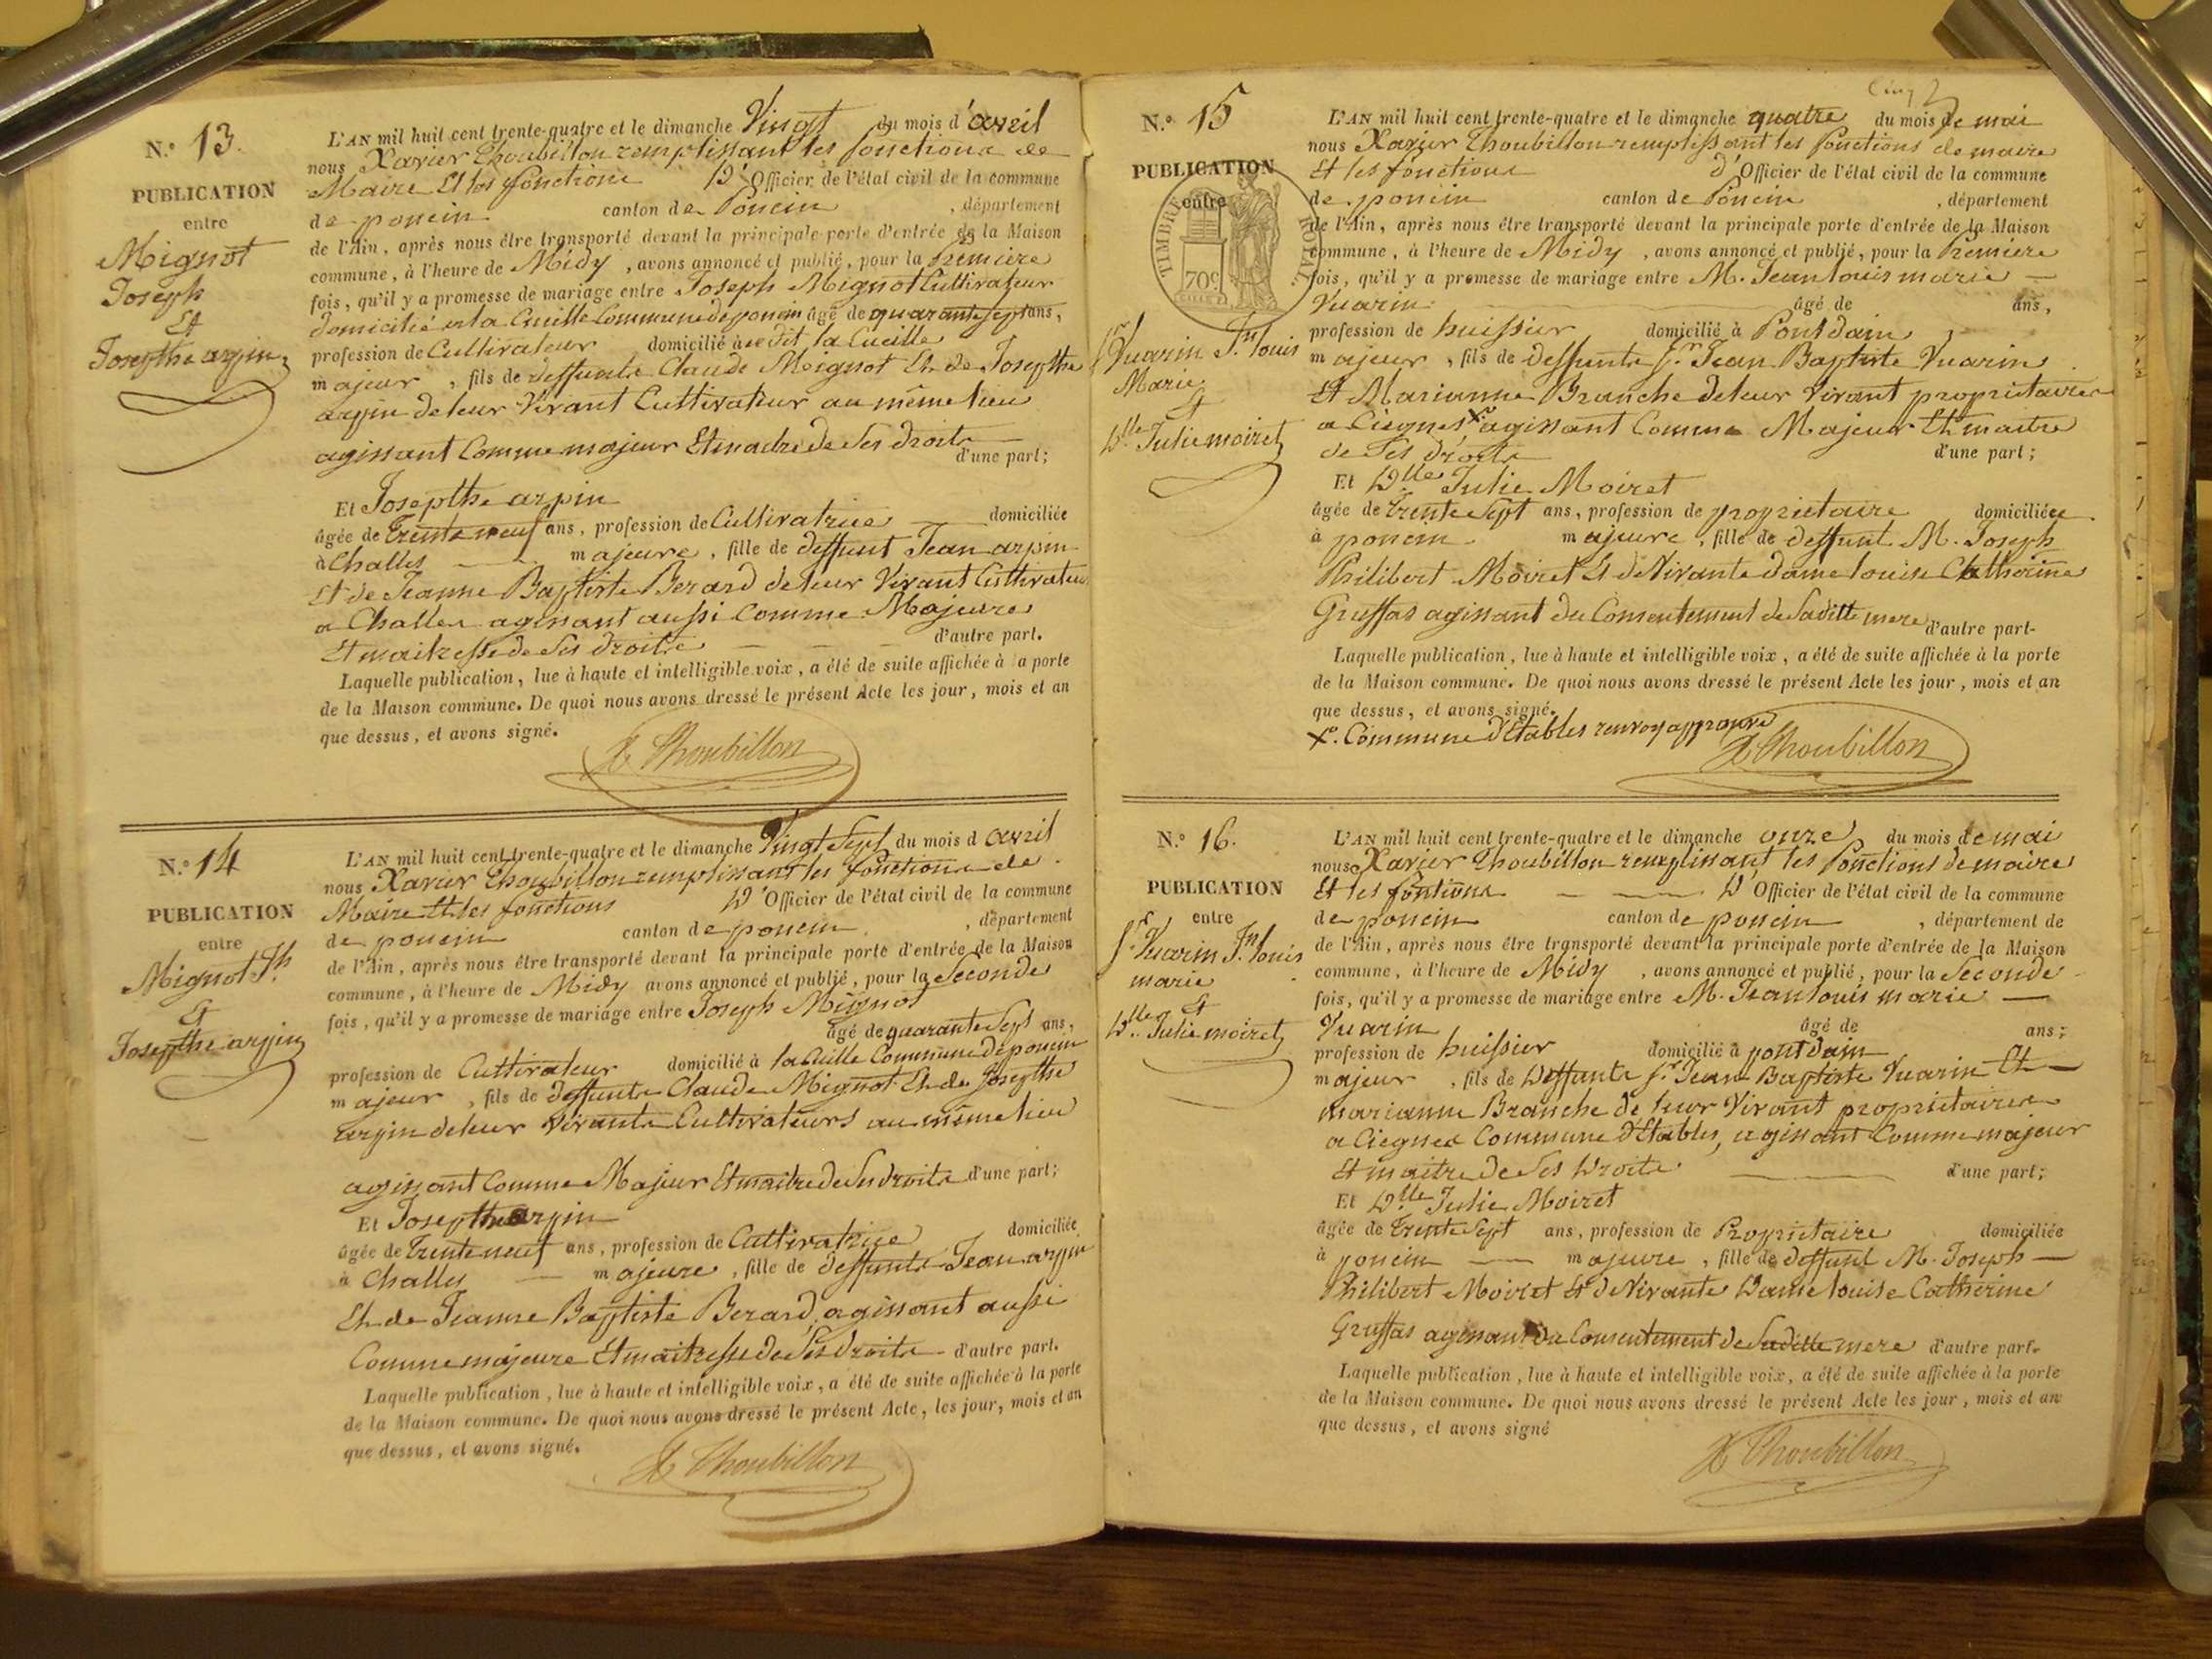 N.º 13.
PUBLICATION
entre
Mignot
Joseph
Et
Josepthe arpin
L'AN mil huit cent trente-quatre et le dimanche Vingt du mois d'avril
nous Xavier Thoubillon remplissant les fonctions de
Maire Et les fonctions D'Officier de l'état civil de la commune
de poncin canton de Poncin , département
de l'Ain, après nous être transporté devant la principale porte d'entrée de la Maison
commune, à l'heure de Midy , avons annoncé et publié, pour la Premiere
fois, qu'il y a promesse de mariage entre Joseph Mignot Cultivateur
domicilié a la Cueille Commune de poncin âgé de quarante sept ans,
profession de Cultivateur domicilié à la Cueille
majeur , fils de deffunts Claude Mignot Et de Josepthe
arpin de leur Vivant Cultivateur au même lieu
agissant Comme majeur Et maitre de Ses droits
d'une part;
Et Josepthe arpin
âgée de Trente neuf ans, profession de Cultivatrice domiciliée
à Challes majeure , fille de deffunt Jean arpin
Et de Jeanne Baptiste Berard de leur Vivant Cultivateur
a Challes agissant aussi Comme Majeure
Et maitresse de Ses droits d'autre part.
Laquelle publication, lue à haute et intelligible voix, a été de suite affichée à la porte
de la Maison commune. De quoi nous avons dressé le présent Acte les jour, mois et an
que dessus, et avons signé.
X Thoubillon
N.º 14
PUBLICATION
entre
Mignot Jh
Et
Josepthe arpin
L'AN mil huit cent trente-quatre et le dimanche Vingt Sept du mois d avril
nous Xavier Thoubillon remplissant les fonctions de
Maire Et les fonctions D'Officier de l'état civil de la commune
de poncin canton de poncin , département
de l'Ain, après nous être transporté devant la principale porte d'entrée de la Maison
commune, à l'heure de Midy avons annoncé et publié, pour la Seconde
fois, qu'il y a promesse de mariage entre Joseph Mignot
âgé de quarante Sept ans,
profession de Cultivateur domicilié à la Cuille Commune de poncin
majeur , fils de deffunts Claude Mignot Et de Josepthe
arpin de leur Vivants Cultivateurs au même lieu
agissant Comme Majeur Et maitre de Ses droits d'une part;
Et Josepthe arpin
âgée de Trente neuf ans, profession de Cultivatrice domiciliée
à Challes majeure , fille de deffunts Jean arpin
Et de Jeanne Baptiste Berard, agissant aussi
Comme majeure Et maitresse de Ses droits d'autre part.
Laquelle publication, lue à haute et intelligible voix, a été de suite affichée à la porte
de la Maison commune. De quoi nous avons dressé le présent Acte, les jour, mois et an
que dessus, et avons signé.
X Thoubillon
N.º 15
PUBLICATION
entre
TIMBRE ROYAL
70c
Sr Vuarin Jn louis
Marie
Et
Dlle Julie moiret
L'AN mil huit cent trente-quatre et le dimanche quatre du mois de mai
nous Xavier Thoubillon remplissant les fonctions de maire
Et les fonctions d'Officier de l'état civil de la commune
de poncin canton de Poncin , département
de l'Ain, après nous être transporté devant la principale porte d'entrée de la Maison
commune, à l'heure de Midy , avons annoncé et publié, pour la Premiere
fois, qu'il y a promesse de mariage entre M. Jean louis marie
Vuarin âgé de ans,
profession de huissier domicilié à Pont dain
majeur , fils de deffunts Sr Jean Baptiste Vuarin
Et Marianne Branche de leur Vivant propriétaires
a Ciegnes X agissant Comme Majeur Et maitre
de Ses droits d'une part;
Et Dlle Julie Moiret
âgée de Trente Sept ans, profession de propriétaire domiciliée
à poncin majeure , fille de deffunt M. Joseph
Philibert Moiret Et de Vivante dame louise Catherine
Gruffas agissant du Consentement de Sa ditte mere d'autre part-
Laquelle publication, lue à haute et intelligible voix, a été de suite affichée à la porte
de la Maison commune. De quoi nous avons dressé le présent Acte les jour, mois et an
que dessus, et avons signé.
X. Commune d'Etables renvoy approuvé
X Thoubillon
N.º 16.
PUBLICATION
entre
Sr Vuarin Jn louis
marie
Et
Dlle Julie moiret
L'AN mil huit cent trente-quatre et le dimanche onze du mois de mai
nous Xavier Thoubillon remplissant les fonctions de maire
Et les fontions D'Officier de l'état civil de la commune
de poncin canton de poncin , département de
de l'Ain, après nous être transporté devant la principale porte d'entrée de la Maison
commune, à l'heure de Midy , avons annoncé et publié, pour la Seconde
fois, qu'il y a promesse de mariage entre M. Jean louis marie
Vuarin âgé de ans;
profession de huissier domicilié à pont dain
majeur , fils de Deffunts Sr Jean Baptiste Vuarin Et
marianne Branche de leur Vivant propriétaires
a Ciegnes Commune d'Etables, agissant Comme majeur
Et maitre de Ses Droits d'une part;
Et Dlle Julie Moiret
âgée de Trente Sept ans, profession de Propriétaire domiciliée
à poncin majeure , fille de deffunt M. Joseph
Philibert Moiret Et de Vivante Dame louise Catherine
Gruffas agissant du Consentement de Sa ditte mere d'autre part.
Laquelle publication, lue à haute et intelligible voix, a été de suite affichée à la porte
de la Maison commune. De quoi nous avons dressé le présent Acte les jour, mois et an
que dessus, et avons signé
X Thoubillon